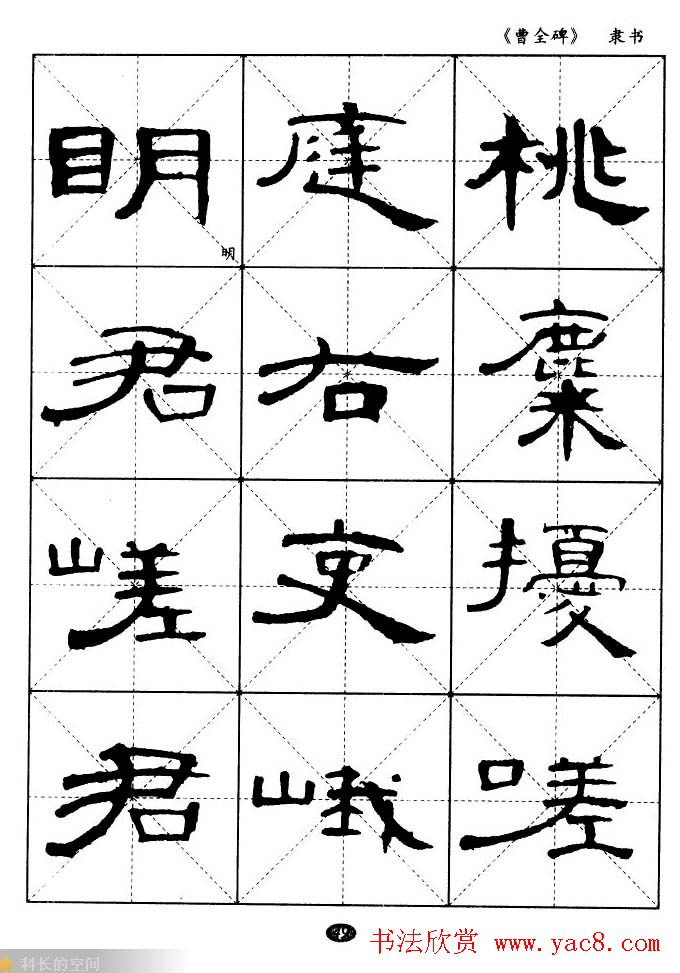 《曹全碑》 隶书
桃麋擾嗟
庭右吏峨
明君嵯君
明
书法欣赏 www.yac8.com
科长的空间